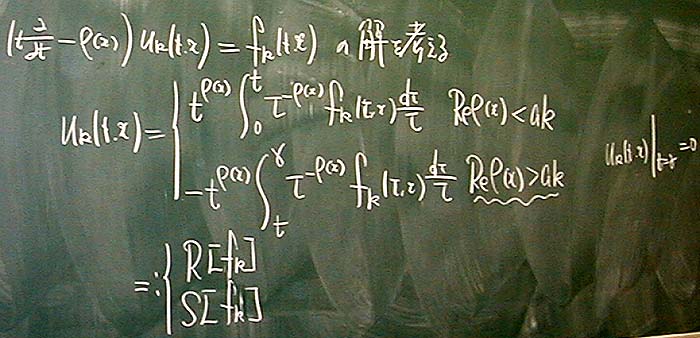 (t ∂/∂t − ρ(x)) u_k(t,x) = f_k(t,x) の解を考える
u_k(t,x) = { t^{ρ(x)} ∫_0^t τ^{−ρ(x)} f_k(τ,x) dτ/τ Reρ(x) < ak
−t^{ρ(x)} ∫_t^γ τ^{−ρ(x)} f_k(τ,x) dτ/τ Reρ(x) > ak u_k(t,x)|_{t=γ} = 0
=: { R[f_k]
S[f_k]